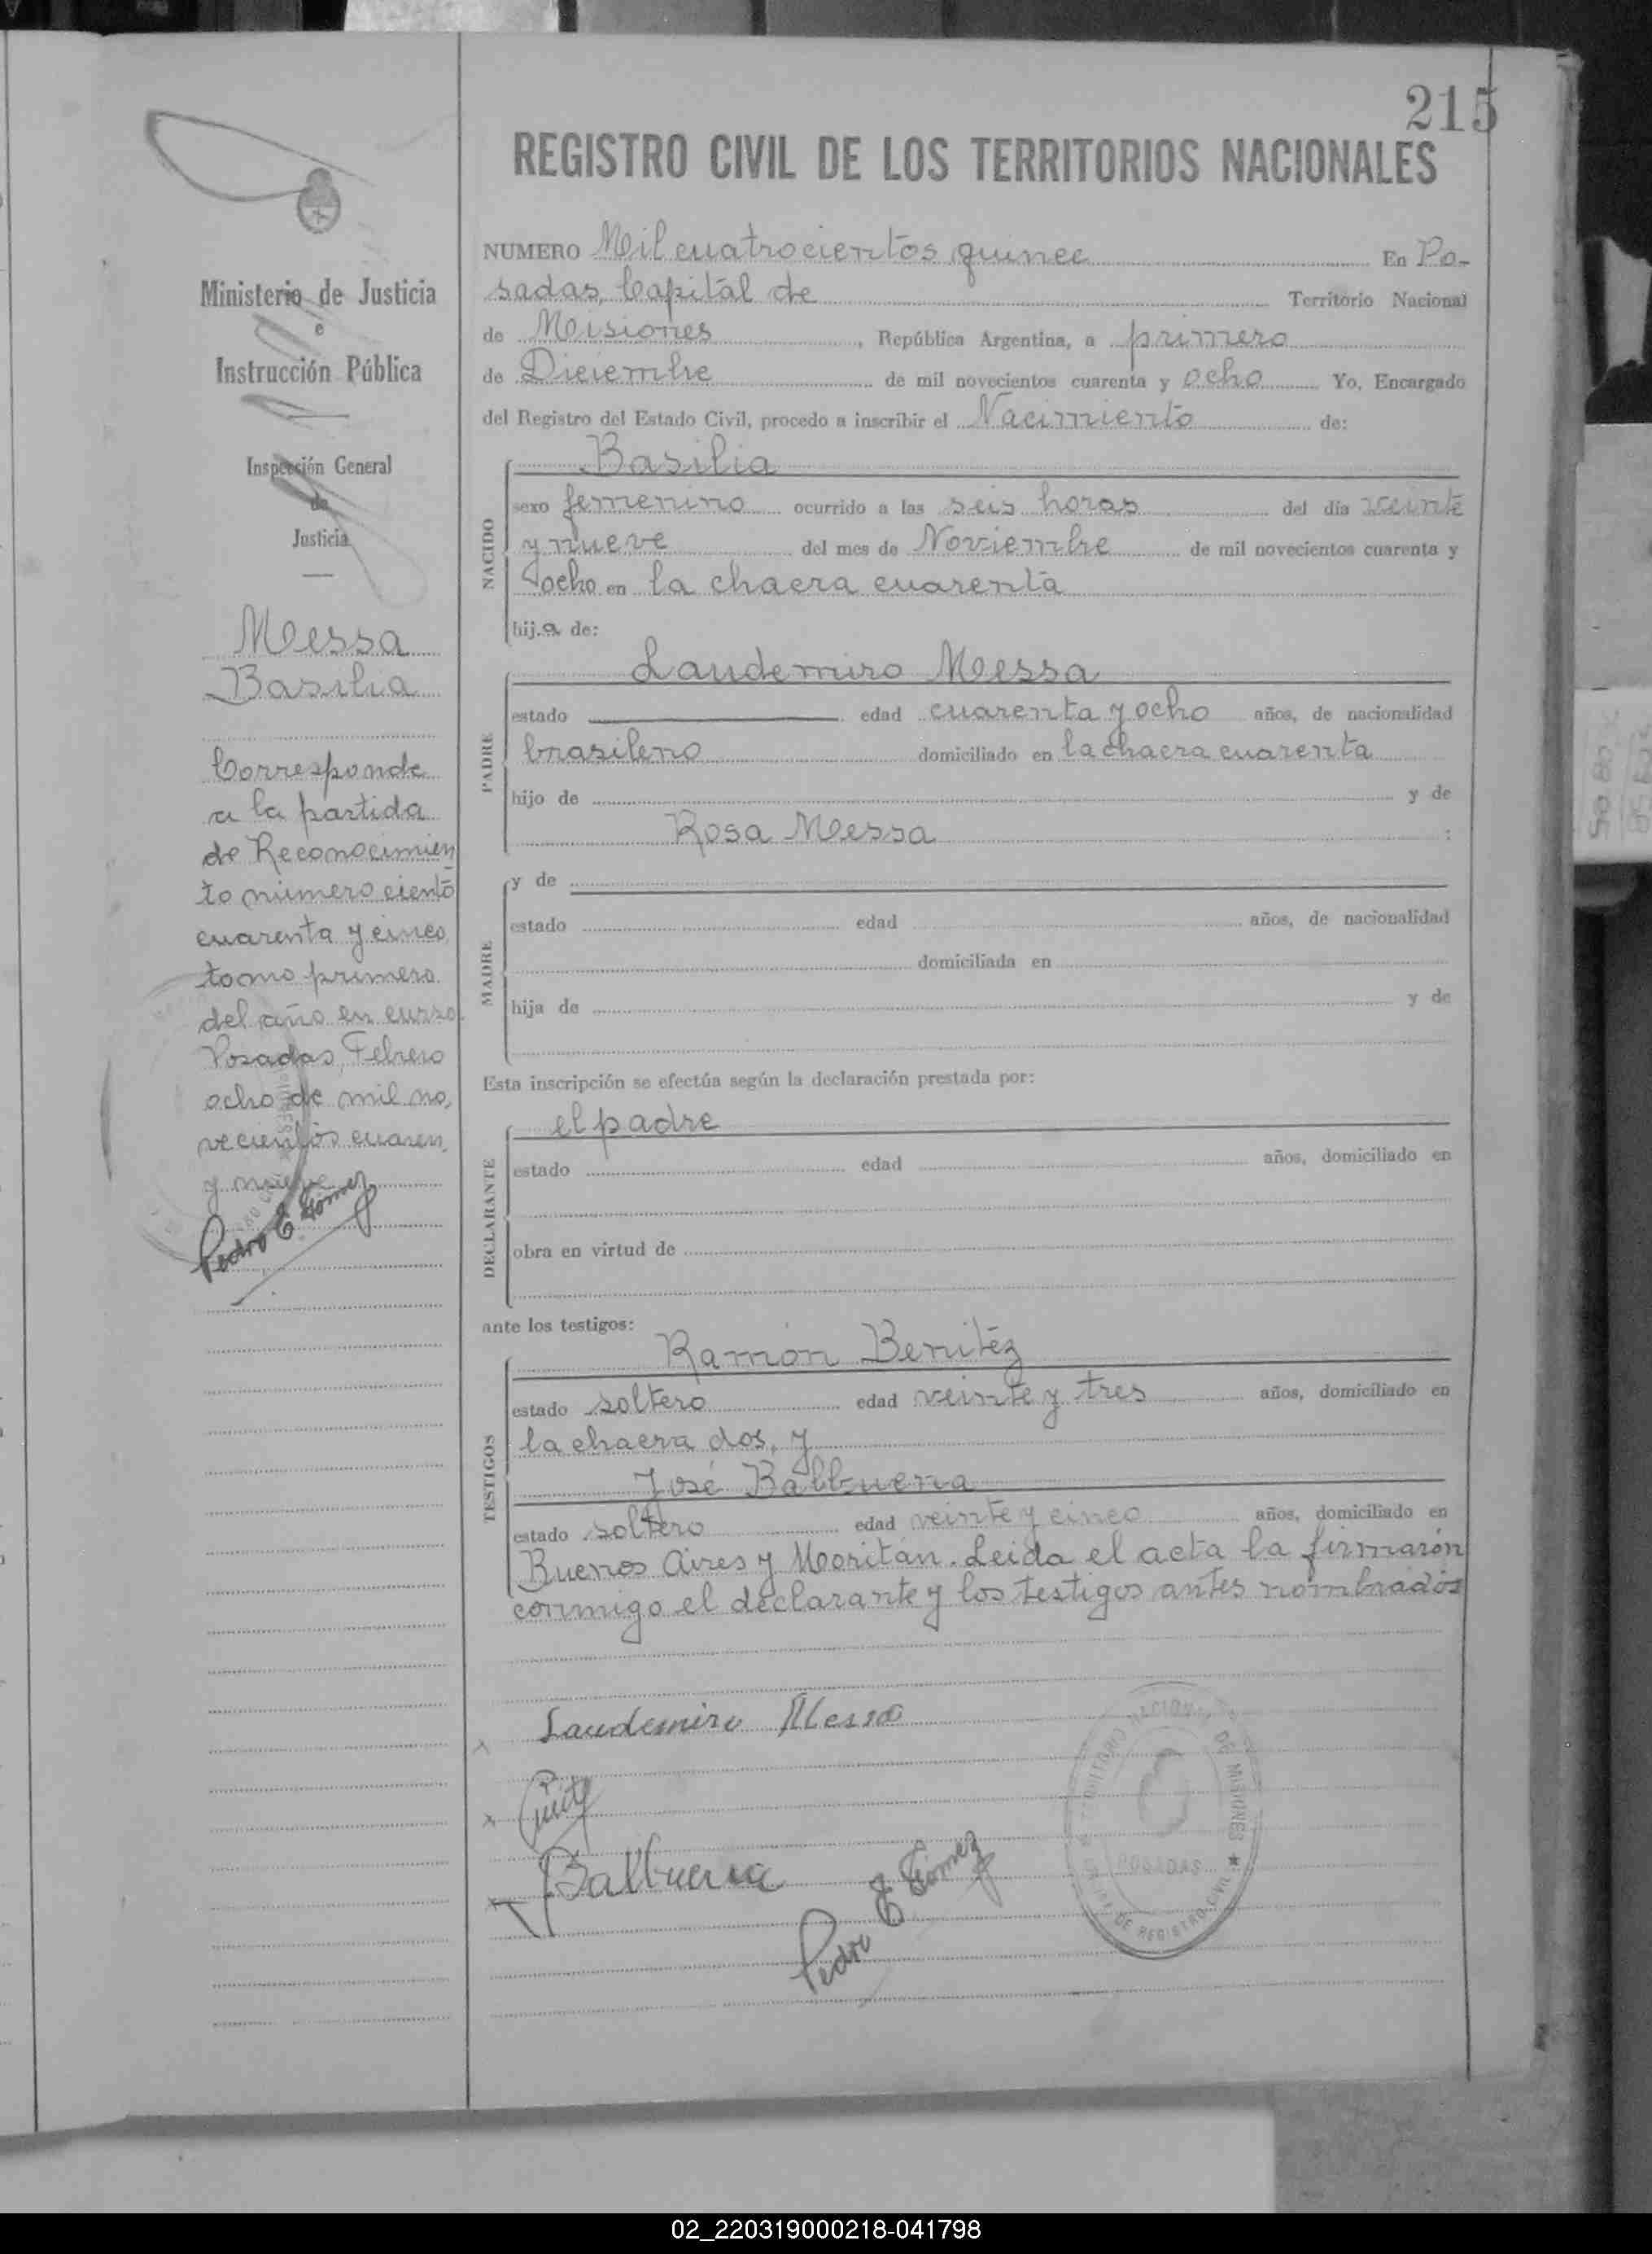 215
REGISTRO CIVIL DE LOS TERRITORIOS NACIONALES
Ministerio de Justicia
e
Instrucción Pública
Inspección General
de
Justicia
Messa
Basilia
Corresponde
a la partida
de Reconocimien
to número ciento
cuarenta y cinco
tomo primero
del año en curso
Posadas, Febrero
ocho de mil no,
vecientos cuaren,
y nueve
Pedro E Gómez
NUMERO Mil cuatrocientos quince En Po-
sadas, Capital de Territorio Nacional
de Misiones, República Argentina, a primero
de Diciembre de mil novecientos cuarenta y ocho Yo, Encargado
del Registro del Estado Civil, procedo a inscribir el Nacimiento de:
NACIDO
Basilia
sexo femenino ocurrido a las seis horas del día veinte
y nueve del mes de Noviembre de mil novecientos cuarenta y
ocho en la chacra cuarenta
hija de:
PADRE
Laudemiro Messa
estado edad cuarenta y ocho años, de nacionalidad
brasileno domiciliado en la chacra cuarenta
hijo de y de
Rosa Messa :
MADRE
y de
estado edad años, de nacionalidad
domiciliada en
hija de y de
Esta inscripción se efectúa según la declaración prestada por:
DECLARANTE
el padre
estado edad años, domiciliado en
obra en virtud de
ante los testigos:
TESTIGOS
Ramón Benitéz
estado soltero edad veinte y tres años, domiciliado en
la chacra dos, y
José Balbuena
estado soltero edad veinte y cinco años, domiciliado en
Buenos Aires y Moritán. Leida el acta la firmarón
conmigo el declarante y los testigos antes nombrados
Laudemiro Messa
Balbuena
Pedro E Gómez
TERRITORIO NACIONAL DE MISIONES ★
POSADAS
DE REGISTRO CIVIL
02_220319000218-041798